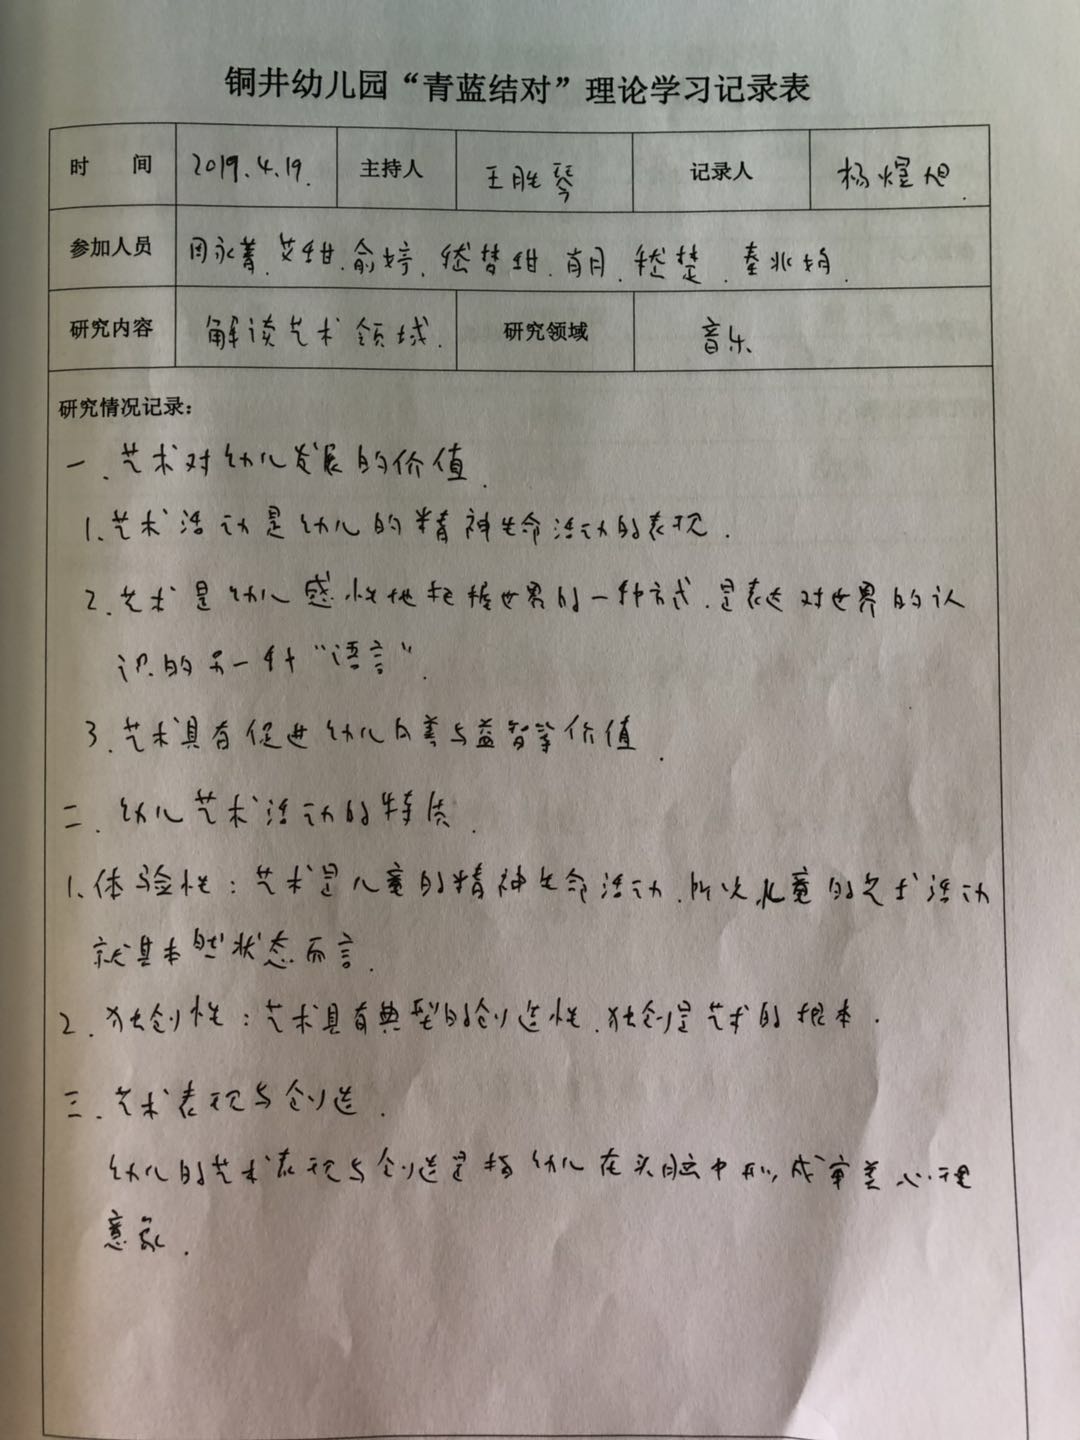 铜井幼儿园“青蓝结对”理论学习记录表
时 间 2019.4.19. 主持人 王胜琴 记录人 杨煜旭
参加人员 周永菁.艾甜.俞婷.嵇梦甜.肖月.嵇楚.秦兆娟.
研究内容 解读艺术领域. 研究领域 音乐
研究情况记录：
一.艺术对幼儿发展的价值.
1.艺术活动是幼儿的精神生命活动的表现.
2.艺术是幼儿感性地把握世界的一种方式.是表达对世界的认
识的另一种“语言”.
3.艺术具有促进幼儿向善与益智等价值.
二.幼儿艺术活动的特质.
1.体验性：艺术是儿童的精神生命活动.所以儿童的艺术活动
就其本然状态而言.
2.独创性：艺术具有典型的创造性.独创是艺术的根本.
三.艺术表现与创造.
幼儿的艺术表现与创造是指幼儿在头脑中形成审美心理
意象.